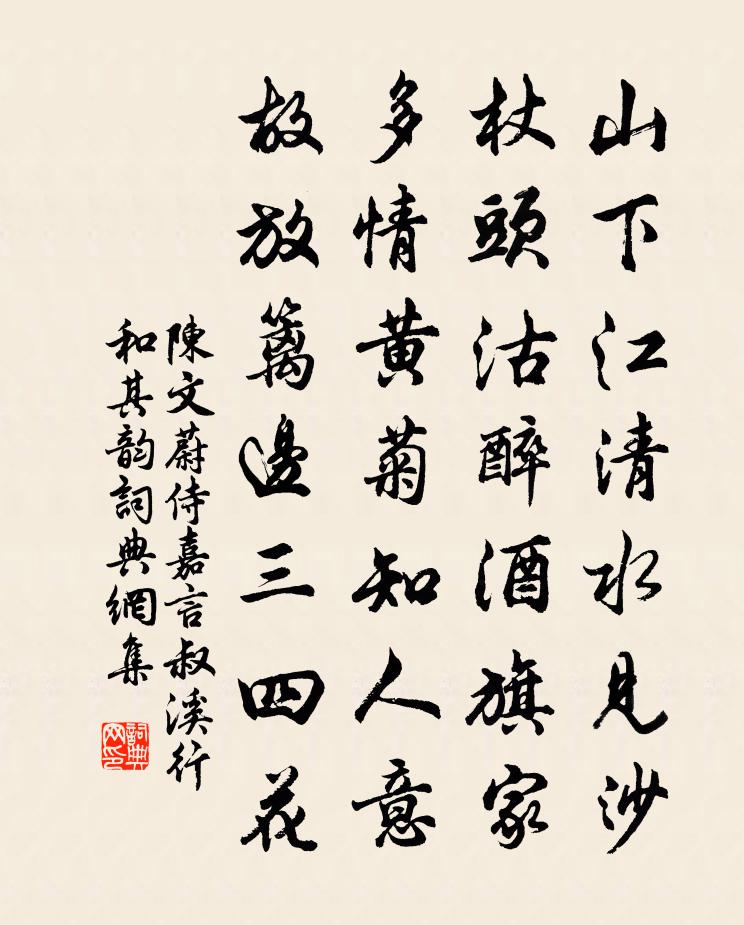 山下江清水見沙
杖頭沽醉酒旗家
多情黄菊知人意
故放籬邊三四花
陳文蔚侍嘉言叔溪行
和其韵詞典網集
詞典
网印